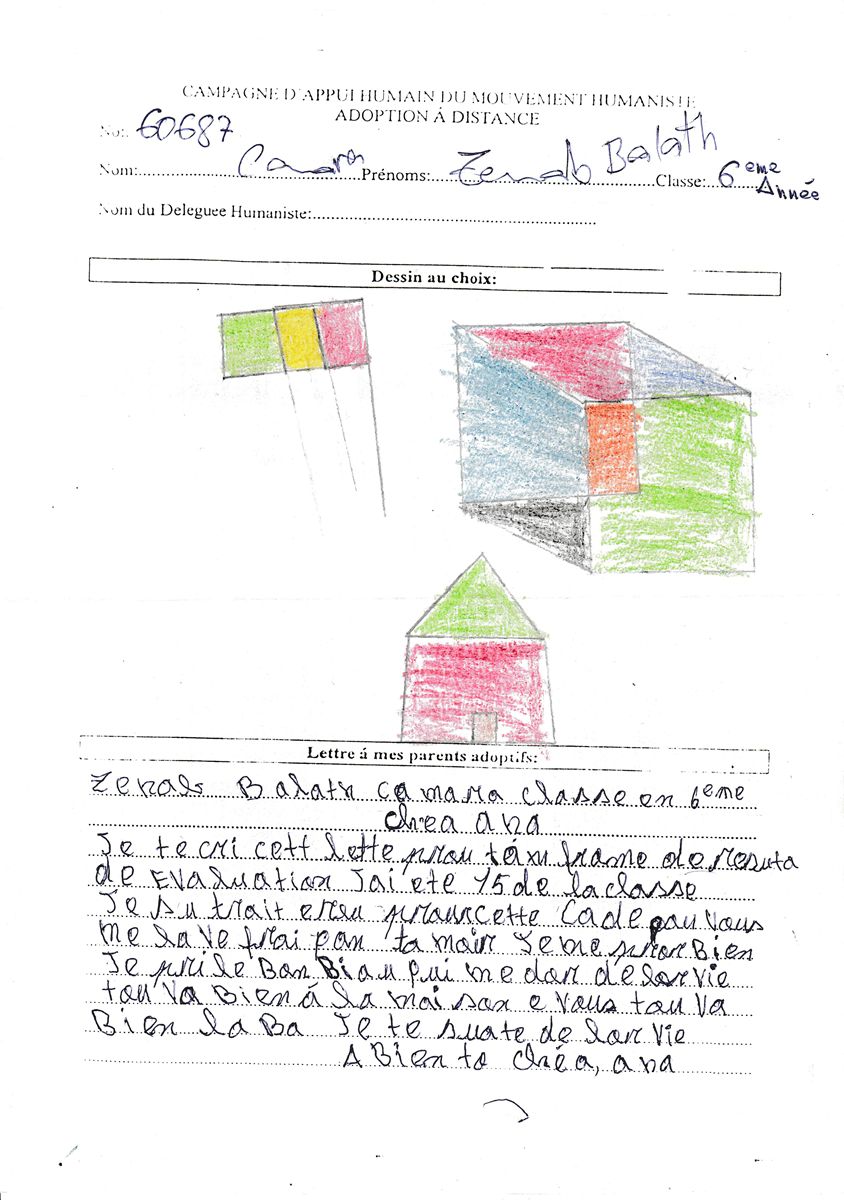 CAMPAGNE D'APPUI HUMAIN DU MOUVEMENT HUMANISTE
ADOPTION Á DISTANCE
No: 60687
Nom: Camara Prénoms: Zenab Balath Classe: 6eme Année
Nom du Deleguee Humaniste:
Dessin au choix:
Lettre á mes parents adoptifs:
Zenab Balath camara classe en 6eme
chea ana
Je te cri cett lette prou
de Evaluation Jai ete 15 de la classe
Je su trait ereu prour cette Cade pau Vous
me la Ve frai par ta main Je me pror Bien
Je pri le Bon Biau pui me dor de lor Vie
tou Va Bien á la mai son e Vous tou Va
Bien la Ba Je te suate de lor Vie
A Bien to chéa, ana